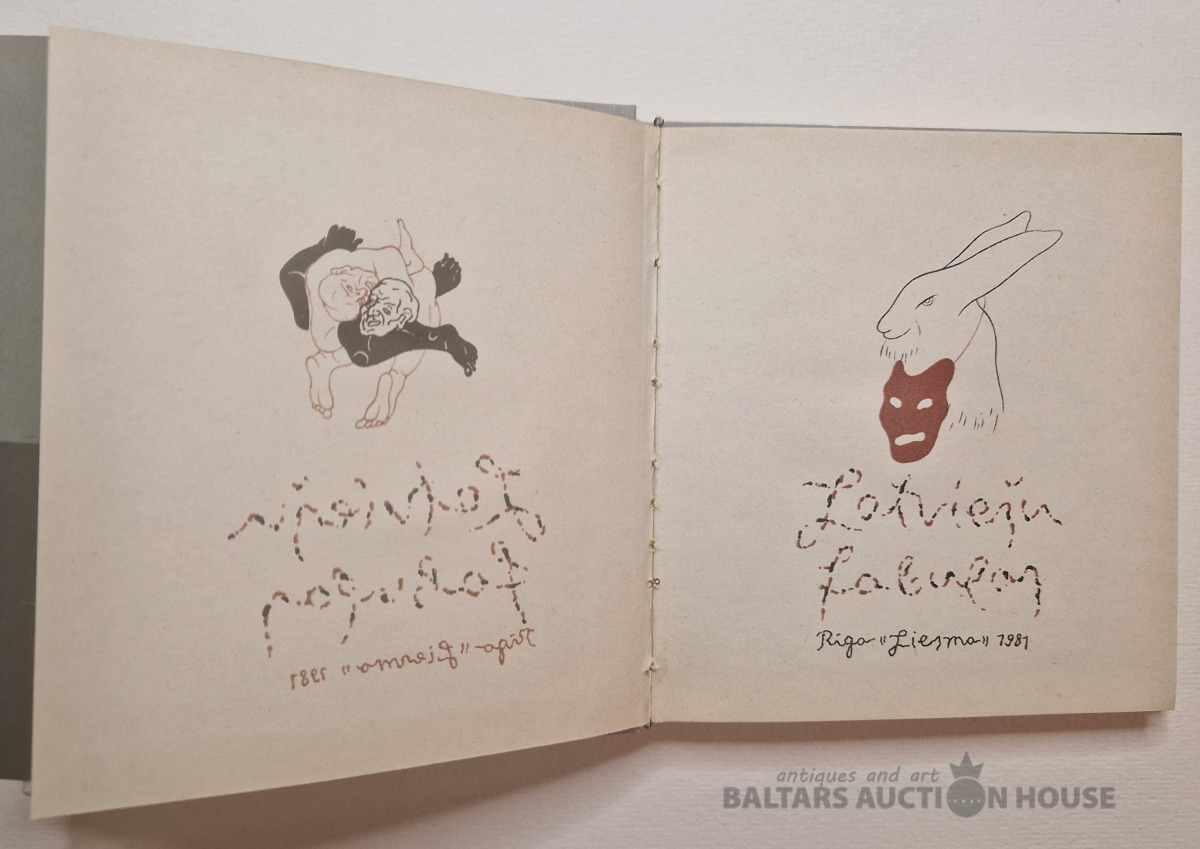 Latviešu
fabulas
Rīga "Liesma" 1981
Latviešu
fabulas
Rīga "Liesma" 1981
antiques and art
BALTARS AUCTION HOUSE